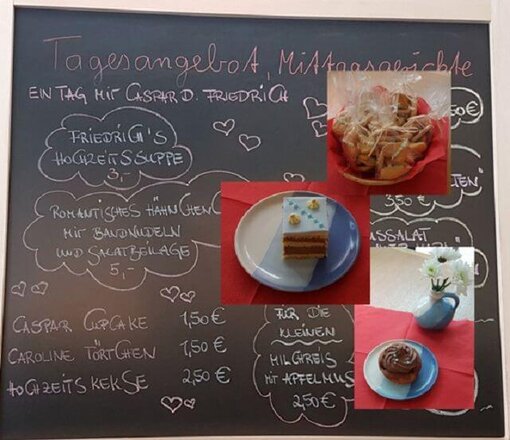 Tagesangebot, Mittagsgerichte
EIN TAG MIT CASPAR D. FRIEDRICH
50€
FRIEDRICH'S
HOCHZEITSSUPPE
3,-
3,50€
ROMANTISCHES HÄHNCHEN
MIT BANDNUDELN
UND SALATBEILAGE
5,-
CASPAR CUPCAKE 1,50€
CAROLINE TÖRTCHEN 1,50€
HOCHZEITSKEKSE 2,50€
FÜR DIE
KLEINEN
MILCHREIS
MIT APFELMUS
2,50€